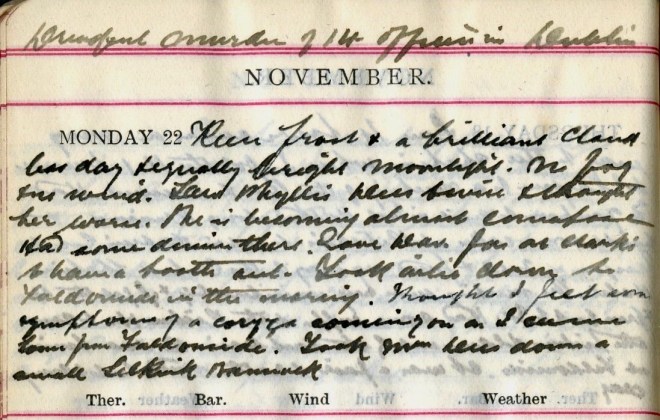 Dreadful murder of 14 officers in Dublin
NOVEMBER.
MONDAY 22 Keen frost & a brilliant cloud
less day & equally bright moonlight. No fog
no wind. Saw Phyllis Kerr twice & thought
her worse. She is becoming almost comatose
Had some dinner there. Gave Dav. Jos at Clarks
to have a bottle out. Took down to
Faldonside in the morning. Thought I felt some
symptoms of a coryza coming on as I came
home from Faldonside. Took Mrs Kerr down a
small Selkirk Bannock
Ther. Bar. Wind Weather